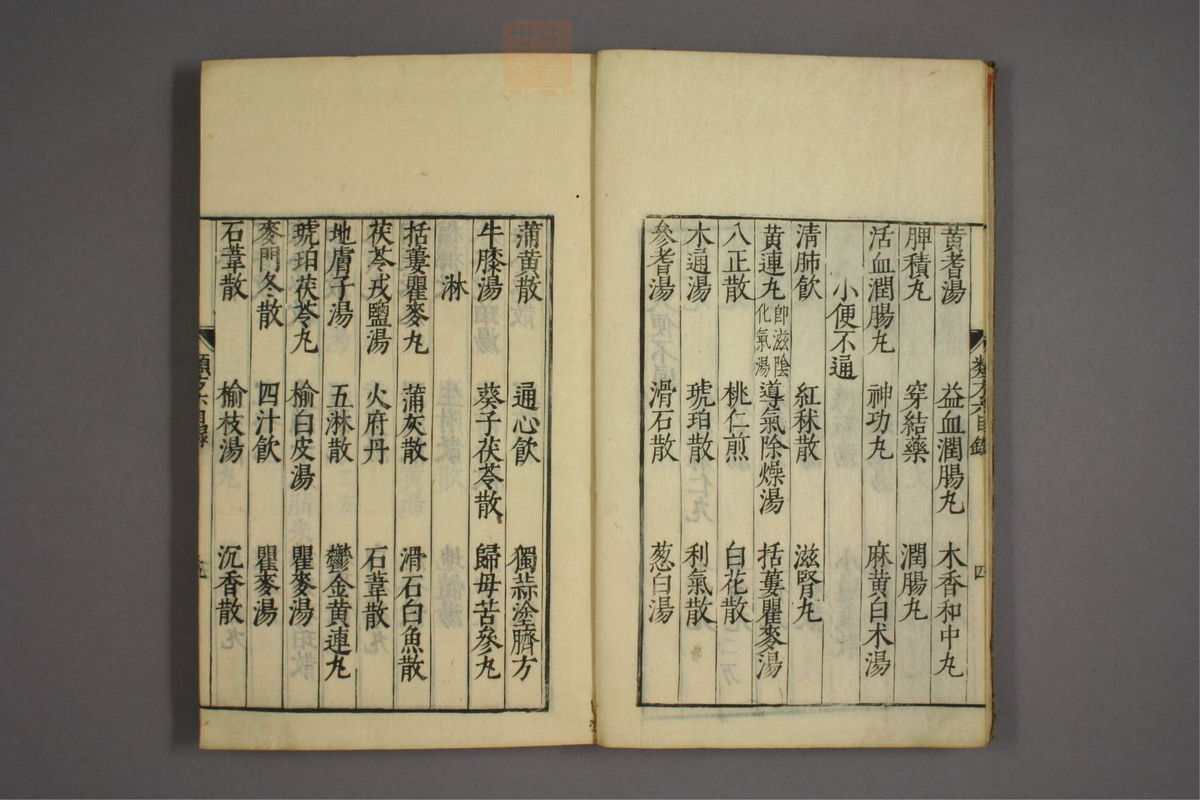 黄耆湯 益血潤腸丸 木香和中丸
脾積丸 穿結藥 潤腸丸
活血潤腸丸 神功丸 麻黄白术湯
小便不通
清肺飲 紅秫散 滋腎丸
黄連丸 即滋陰化氣湯 導氣除燥湯 括蔞瞿麥湯
八正散 桃仁煎 白花散
木通湯 琥珀散 利氣散
參耆湯 滑石散 葱白湯
蒲黄散 通心飲 獨蒜塗臍方
牛膝湯 葵子茯苓散 歸母苦參丸
淋
括蔞瞿麥丸 蒲灰散 滑石白魚散
茯苓戎鹽湯 火府丹 石葦散
地膚子湯 五淋散 鬱金黄連丸
琥珀茯苓丸 榆白皮湯 瞿麥湯
麥門冬散 四汁飲 瞿麥湯
石葦散 榆枝湯 沉香散